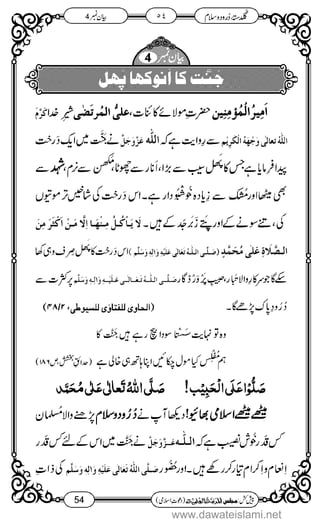 بیان نمبر 4
٥٤
گلدستۂ دُرود و سلام
بیان نمبر 4
جنّت کا انوکھا پھل
اَمِیرُ الْمُؤْمِنِین حضرتِ مولائے کائنات، علیُّ المُرتَضٰی شیرِ خدا
کَرَّمَ اللہُ تَعَالٰی وَجْہَہُ الْکَرِیْم سے روایت ہے کہ اللہ عَزَّوَجَلَّ نے جنّت میں ایک درخت
پیدا فرمایا ہے جس کا پھل سیب سے بڑا، اَنار سے چھوٹا، مکھن سے نرم، شہد سے
بھی میٹھا اور مُشک سے زیادہ خوشبودار ہے۔ اس درخت کی شاخیں تر موتیوں
کی، تنے سونے کے اور پتّے زَبَرجَد کے ہیں۔ لَا یَاْکُلُ مِنْہَا اِلَّا مَنْ اَکْثَرَ مِنَ
الصَّلَاۃِ عَلٰی مُحَمَّدٍ (صَلَّی اللہُ تَعَالٰی عَلَیْہِ وَاٰلِہٖ وَسَلَّم) اس درخت کا پھل صرف وہی کھا
سکے گا جو سرکارِ والا تبار، حبیبِ پروردگار صَلَّی اللہُ تَعَالٰی عَلَیْہِ وَاٰلِہٖ وَسَلَّم پر کثرت سے
دُرُودِ پاک پڑھے گا۔ (الحاوی للفتاوٰی للسیوطی، ٤٨/٢)
وہ تو نہایت سَستا سودا بیچ رہے ہیں جنّت کا
ہم مُفلِس کیا مول چکائیں اپنا ہاتھ ہی خالی ہے (حدائقِ بخشش، ص ١٨٦)
صَلُّوْا عَلَی الْحَبِیْب! صَلَّی اللہُ تَعَالٰی عَلٰی مُحَمَّد
میٹھے میٹھے اسلامی بھائیو! دیکھا آپ نے دُرُود و سلام پڑھنے والا مُسلمان
کس قدر خوش نصیب ہے کہ اللہ عَزَّوَجَلَّ نے جنّت میں اس کے لئے کس قدر
انعام و اِکرام تیار کر رکھے ہیں۔ اور حُضُور صَلَّی اللہُ تَعَالٰی عَلَیْہِ وَاٰلِہٖ وَسَلَّم کی ذات
54
پیش کش: مجلس المدینۃ العلمیۃ (دعوتِ اسلامی)
www.dawateislami.net